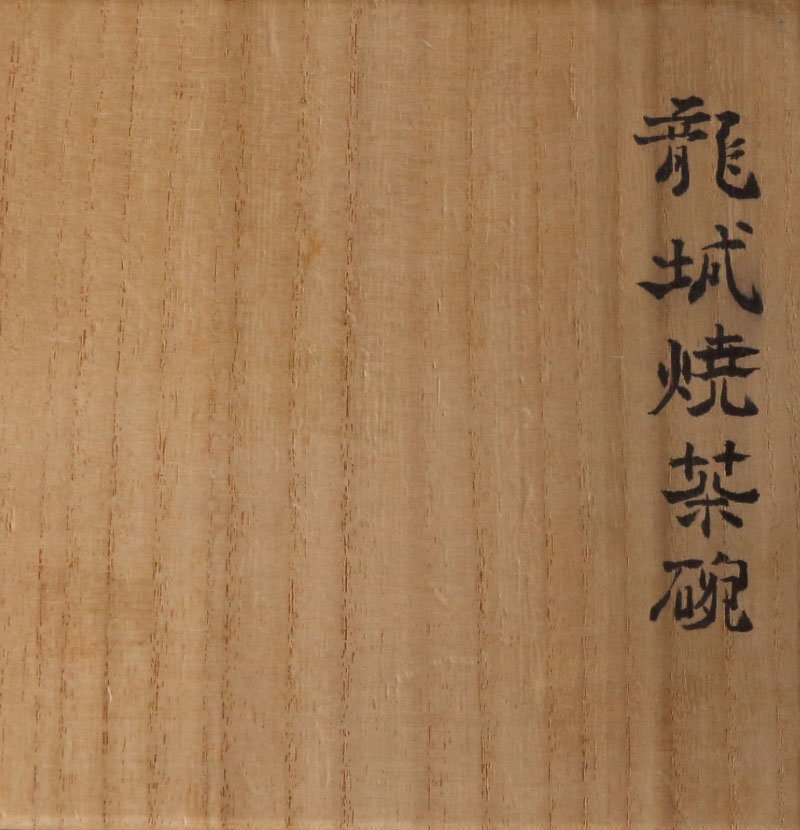 龍城焼茶碗